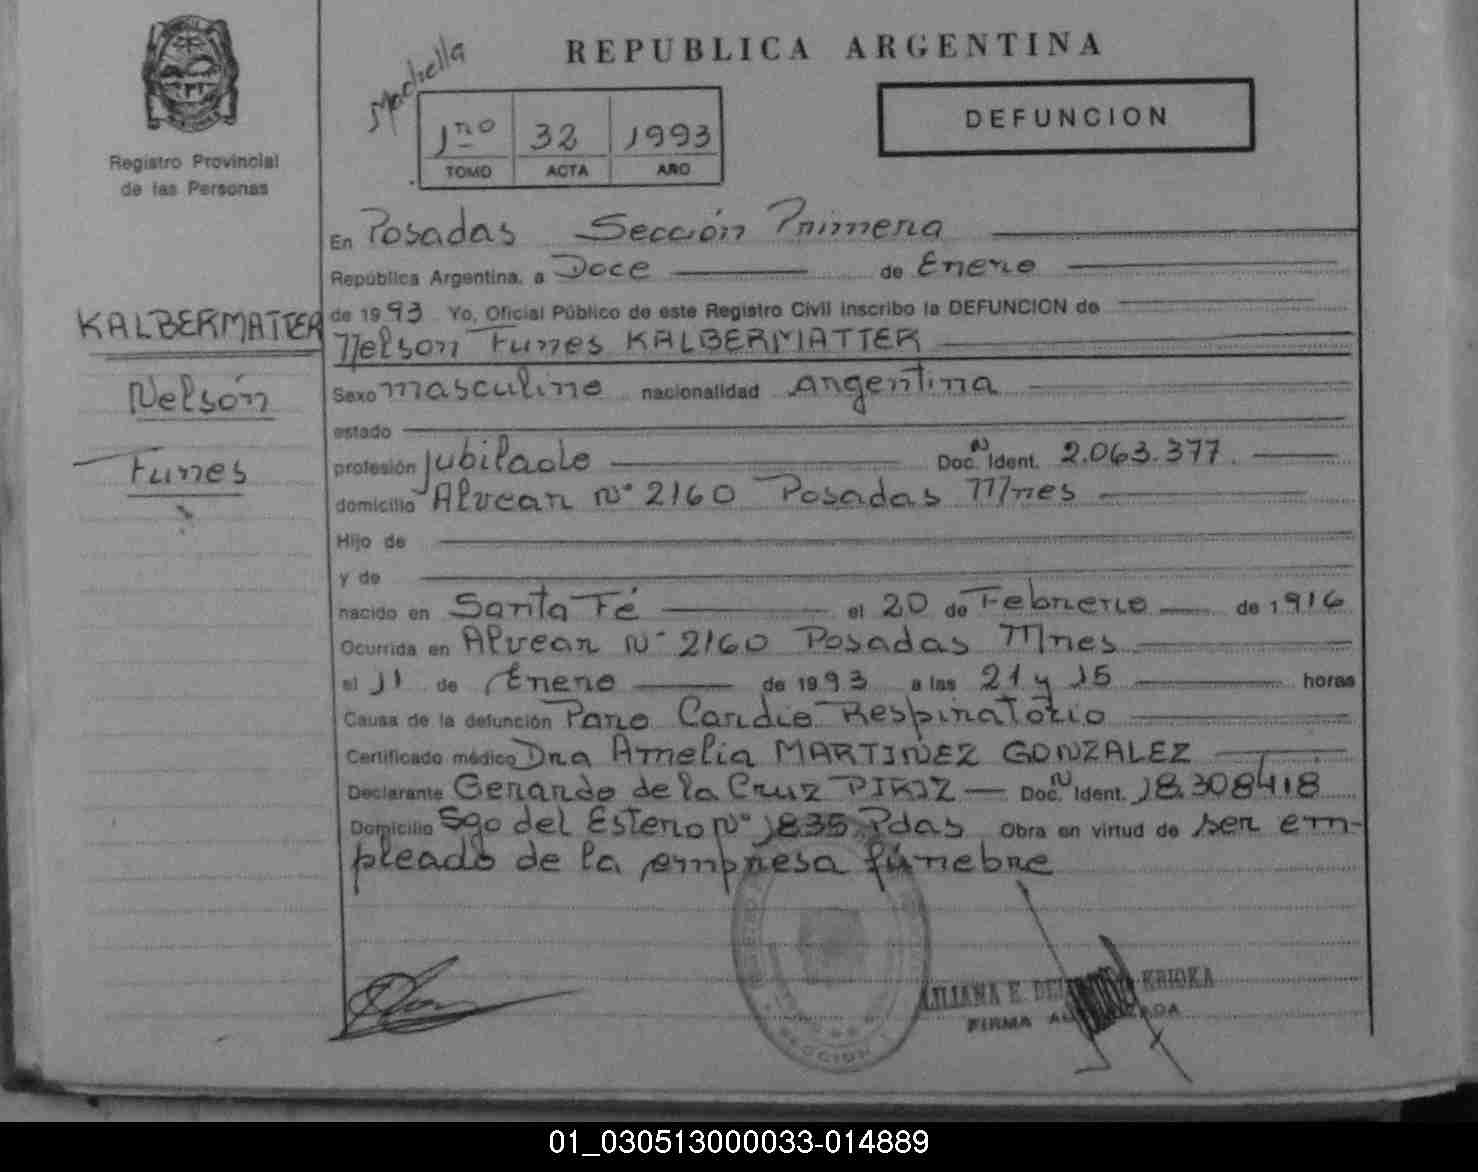 REPUBLICA ARGENTINA
DEFUNCION
Registro Provincial
de las Personas
1no 32 1993
TOMO ACTA AÑO
En Posadas Sección Primera
República Argentina, a Doce de Enero
de 1993 Yo, Oficial Público de este Registro Civil inscribo la DEFUNCION de
Nelson Funes KALBERMATTER
KALBERMATTER
Nelsón
Funes
Sexo masculino nacionalidad Argentina
estado
profesión jubilado Doc. N Ident. 2.063.377
domicilio Alvear Nº 2160 Posadas Mnes
Hijo de
y de
nacido en Santa Fé el 20 de Febrero de 1916
Ocurrida en Alvear Nº 2160 Posadas Mnes
el 11 de Enero de 1993 a las 21 y 15 horas
Causa de la defunción Paro Cardio Respiratorio
Certificado médico Dra Amelia MARTINEZ GONZALEZ
Declarante Gerardo de la Cruz PIRIZ Doc. N Ident. 18.308418
Domicilio Sgo del Estero Nº 1835 Pdas Obra en virtud de ser em-
pleado de la empresa fúnebre
LILIANA E. KRIOKA
FIRMA
SECCION
01_030513000033-014889